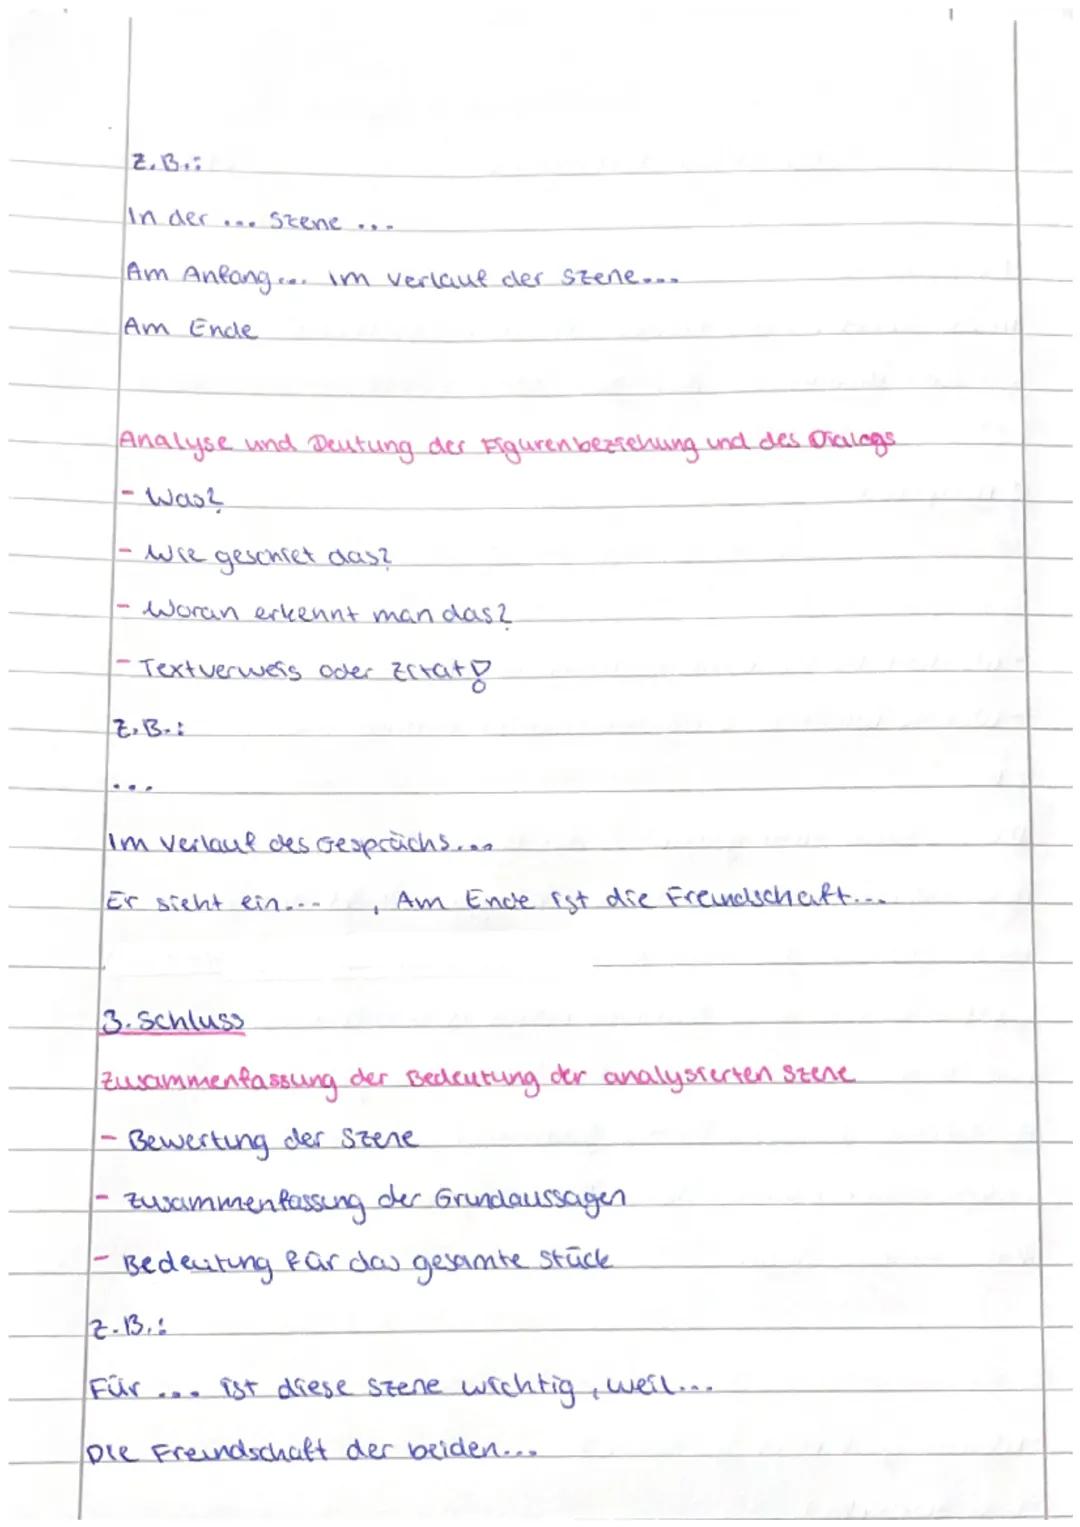 z.B.:
In der ... Szene ...
Am Anfang... im verlauf der szene...
Am Ende
Analyse und Deutung der Figurenbeziehung und des Dialogs
- Was?
- Wie geschiet das?
- Woran erkennt man das?
- Textverweis oder Zitat!
z.B.:
...
Im Verlauf des Gesprächs...
Er sieht ein... , Am Ende ist die Freundschaft...
3. Schluss
Zusammenfassung der Bedeutung der analysierten Szene
- Bewertung der Szene
- Zusammenfassung der Grundaussagen
- Bedeutung für das gesamte Stück
z.B.:
Für ... ist diese Szene wichtig, weil...
Die Freundschaft der beiden...